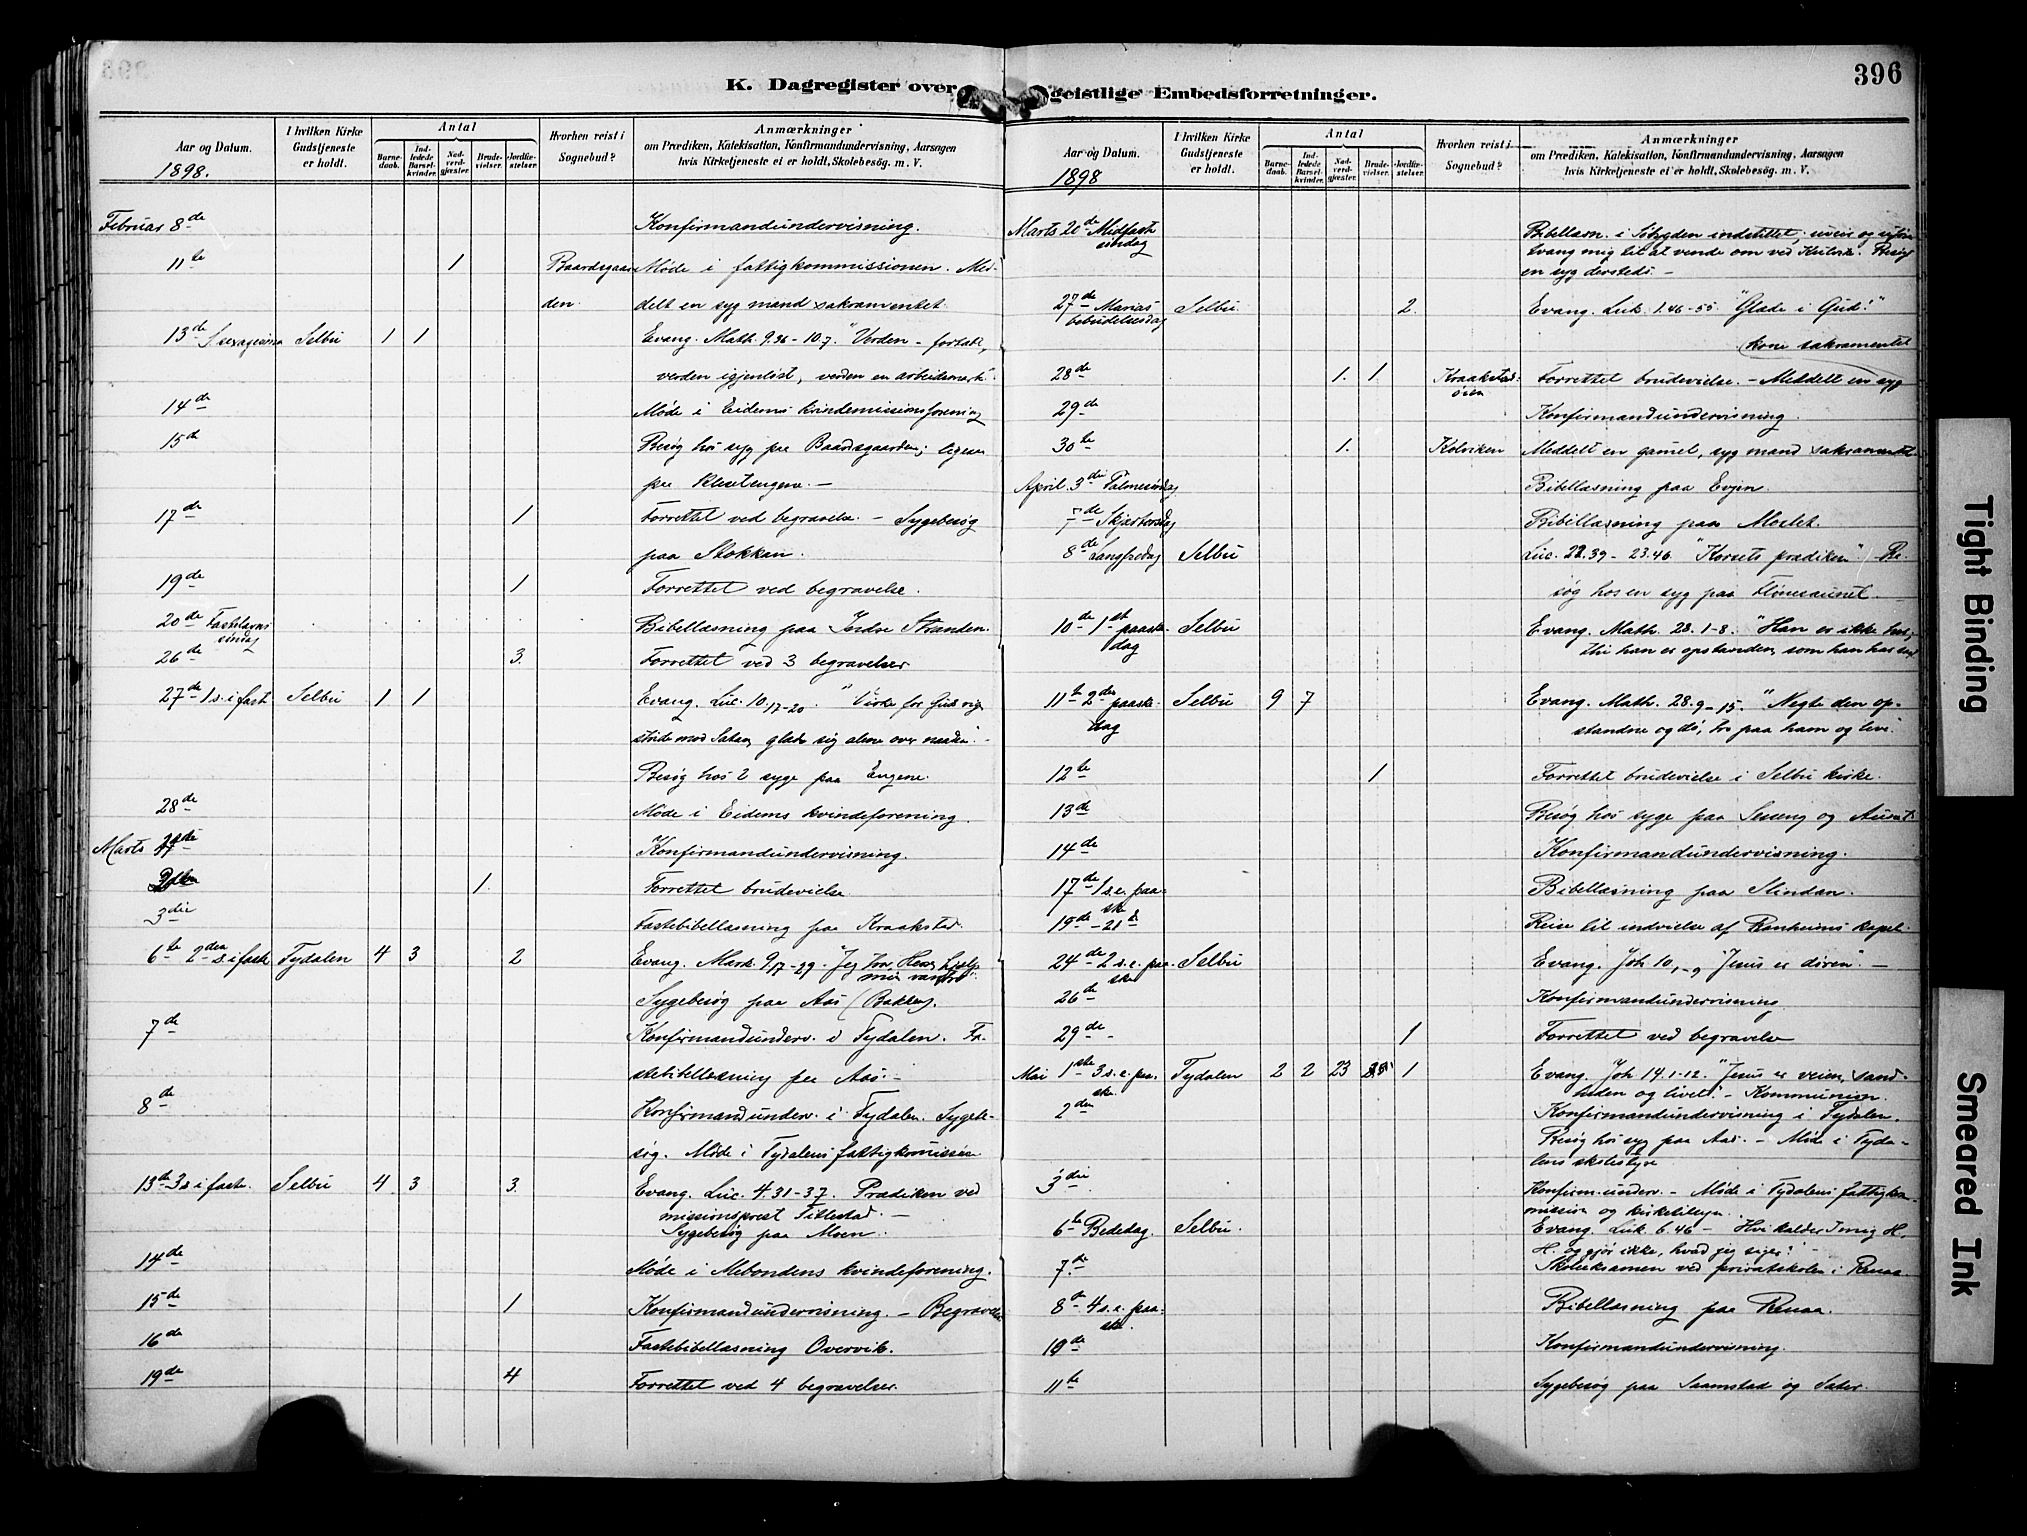 396
K. Dagregister over geistlige Embedsforretninger.
Aar og Datum.
1898.
I hvilken Kirke Gudstjeneste er holdt.
Antal
Barnedaab.
Indledede Barselkvinder.
Nadverdgjæster.
Brudevielser.
Jordfæstelser.
Hvorhen reist i Sognebud?
Anmærkninger
om Prædiken, Katekisation, Konfirmandundervisning, Aarsagen
hvis Kirketjeneste ei er holdt, Skolebesøg. m. V.
Februar 8de Konfirmandundervisning.
11te 1 Baardsgaar Møde i fattigkommissionen. Med-
den. delt en syg mand sakramentet.
13de Sexagesima Selbu 1 1 Evang. Math. 9.36-10.7. "Verden - fortabt,
verden igjenløst, verden en arbeidsmark".
14de Møde i Eidems kvindemissionsforening
15de Besøg hos syg paa Baardsgaarden; ligesaa
paa
17de 1 Forrettet ved begravelse. - Sygebesøg
paa Stokkan.
19de 1 Forrettet ved begravelse.
20de Fastelavns Bibellæsning paa Indre Stranden.
søndag
26de 3. Forrettet ved 3 begravelser
27de 1 s. i fast. Selbu 1 1 Evang. Luc. 10.17-20. "Virke for Guds rige
mod Satan, glæde sig alene over naaden". -
Besøg hos 2 syge paa Engene.
28de Møde i Eidems kvindeforening.
Marts Konfirmandundervisning.
1. Forrettet brudevielse
3die Fastebibellæsning paa Kraakstad.
6te 2den s. i faste Tydalen 4 3 2 Evang. Mark. 9.17-29. "Jeg tror, Herre, hjælp
min vantro".
Sygebesøg paa Aas (Bakken).
7de Konfirmandunderv. i Tydalen. Fa-
stebibellæsning paa Aas. -
8de Konfirmandunderv. i Tydalen. Sygebe-
søg. Møde i Tydalens fattigkommission
13de 3 s. i faste. Selbu 4 3 3. Evang. Luc. 4.31-37. Prædiken ved
missionsprest Tillestad. -
Sygebesøg paa Moen.
14de Møde i Mebondens kvindeforening.
15de 1 Konfirmandundervisning. - Begravelse
16de Fastebibellæsning Overvik.
19de 4 Forrettet ved 4 begravelser.
Aar og Datum.
1898
I hvilken Kirke Gudstjeneste er holdt.
Antal
Barnedaab.
Indledede Barselkvinder.
Nadverdgjæster.
Brudevielser.
Jordfæstelser.
Hvorhen reist i Sognebud?
Anmærkninger
om Prædiken, Katekisation, Konfirmandundervisning, Aarsagen
hvis Kirketjeneste ei er holdt, Skolebesøg. m. V.
Marts 20de Midfaste Bibellæsn. i Selbygden indstillet; uveir og uføre
søndag tvang mig til at vende om ved Kulvik. Besøg
en syg dersteds. -
27de Marias Selbu 2. Evang. Luk. 1.46-55 "Glæde i Gud!"
bebudelsesdag
kone sakramentet
28de 1. 1 Kraakstad- Forrettet brudevielse. - Meddelt en syg
øien
29de Konfirmandundervisning.
30te 1. Kolviken Meddelt en gamel, syg mand sakramentet
April. 3die Palmesøndag Bibellæsning paa Evjen.
7de Skjærtorsdag Bibellæsning paa Moslet.
8de Langfredag Selbu Luc. 22.39-23.46 "Korsets prædiken". Be-
søg hos en syg paa Flønesaunet.
10de 1ste paaske- Selbu Evang. Math. 28.1-8. "Han er ikke her,
dag thi han er opstanden, som han har sagt
11te 2den paaske- Selbu 9 7 Evang. Math. 28.9-15. "Negte den op-
dag standne og dø, tro paa ham og live.
12te 1 Forrettet brudevielse i Selbu kirke.
13de Besøg hos syge paa Sesseng og Aunet.
14de Konfirmandundervisning.
17de 1 s. e. paa- Bibellæsning paa Slindan.
ske
19de-21de Reise til indvielse af Ranheims kapel.
24de 2 s. e. paa- Selbu Evang. Joh. 10,1-9 "Jesus er døren". -
ske
26de Konfirmandundervisning
29de 1 Forrettet ved begravelse
Mai 1ste 3 s. e. paa- Tydalen 2 2 23 1 Evang. Joh. 14.1-12. "Jesus er veien, sand-
ske. heden og livet". - Kommunion.
2den Konfirmandundervisning i Tydalen.
Besøg hos syg paa Aas. - Møde i Tyda-
lens skolestyre
3die Konfirm.underv. - Møde i Tydalens fattigkom-
mission og kirketilsyn.
6te Bededag. Selbu. Evang. Luk. 6.46 - Hvi kalder I mig H,
H. og gjør ikke, hvad jeg siger? -
7de Skoleeksamen ved privatskolen i Renaa.
8de 4 s. e. paa- Bibellæsning paa Renaa.
ske.
10de Konfirmandundervisning.
11te Sygebesøg paa Saamstad og Sæter.
Tight Binding
Smeared Ink